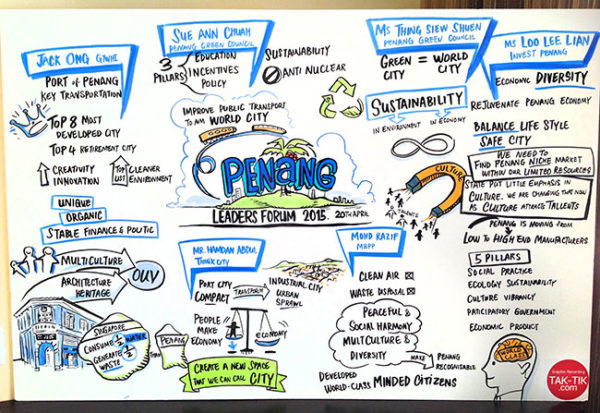 JACK ONG GTWHI
PORT OF PENANG
KEY TRANSPORTATION
TOP 8 MOST
DEVELOPED CITY
TOP 4 RETIREMENT CITY
CREATIVITY
INNOVATION
TOP LIST
CLEANER
ENVIRONMENT
UNIQUE
ORGANIC
STABLE FINANCE & POLITIC
MULTICULTURE
ARCHITECTURE
HERITAGE
OUV
SINGAPORE
CONSUME 1/2 WATER
GENERATE 1/2
WASTE
PENANG
SUE ANN CHUAH
PENANG GREEN COUNCIL
3
PILLARS
EDUCATION
INCENTIVES
POLICY
SUSTAINABILITY
ANTI NUCLEAR
IMPROVE PUBLIC TRANSPORT
TO AM WORLD CITY
PENANG
LEADERS FORUM 2015. 20TH APRIL
MR. HAMDAN ABDUL
THINK CITY
PORT CITY
COMPACT
TRANSFORM
INDUSTRIAL CITY
URBAN
SPRAWL
PEOPLE
MAKE
ECONOMY
ECONOMY
CREATE A NEW SPACE
THAT WE CAN CALL CITY
MOHD RAZIF
MBPP
CLEAN AIR
WASTE DISPOSAL
PEACEFUL &
SOCIAL HARMONY
MULTICULTURE &
DIVERSITY
MAKE
PENANG
RECOGNISABLE
DEVELOPED
WORLD-CLASS MINDED CITIZENS
MS THING SIEW SHUEN
PENANG GREEN COUNCIL
GREEN = WORLD
CITY CITY
SUSTAINABILITY
IN ENVIRONMENT
IN ECONOMY
CULTURE
MS LOO LEE LIAN
INVEST PENANG
ECONOMIC DIVERSITY
REJUVENATE PENANG ECONOMY
BALANCE LIFE STYLE
SAFE CITY
WE NEED TO
FIND PENANG NICHE MARKET
WITHIN OUR LIMITED RESOURCES
STATE PUT LITTLE EMPHASIS IN
CULTURE. WE ARE CHANGING THAT NOW
AS CULTURE ATTRACTS TALENTS
PENANG IS MOVING FROM
LOW TO HIGH END MANUFACTURERS
5 PILLARS
SOCIAL PRACTICE
ECOLOGY SUSTAINABILITY
CULTURE VIBRANCY
PARTICIPATORY GOVERNMENT
ECONOMIC PRODUCT
WORLD
CLASS
Graphic Recording
TAK-TIK
.com